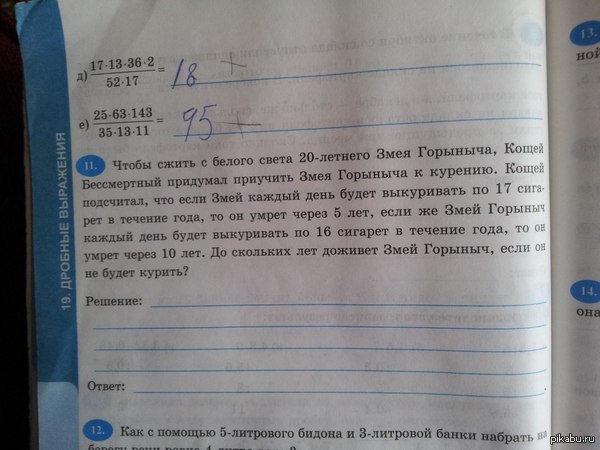 13.
ной
д) 17·13·36·2 / 52·17 = 18 +
е) 25·63·143 / 35·13·11 = 95 +
19. ДРОБНЫЕ ВЫРАЖЕНИЯ
11. Чтобы сжить с белого света 20-летнего Змея Горыныча, Кощей
Бессмертный придумал приучить Змея Горыныча к курению. Кощей
подсчитал, что если Змей каждый день будет выкуривать по 17 сига-
рет в течение года, то он умрет через 5 лет, если же Змей Горыныч
каждый день будет выкуривать по 16 сигарет в течение года, то он
умрет через 10 лет. До скольких лет доживет Змей Горыныч, если он
не будет курить?
14.
она
Решение:
Ответ:
12. Как с помощью 5-литрового бидона и 3-литровой банки набрать на
pikabu.ru